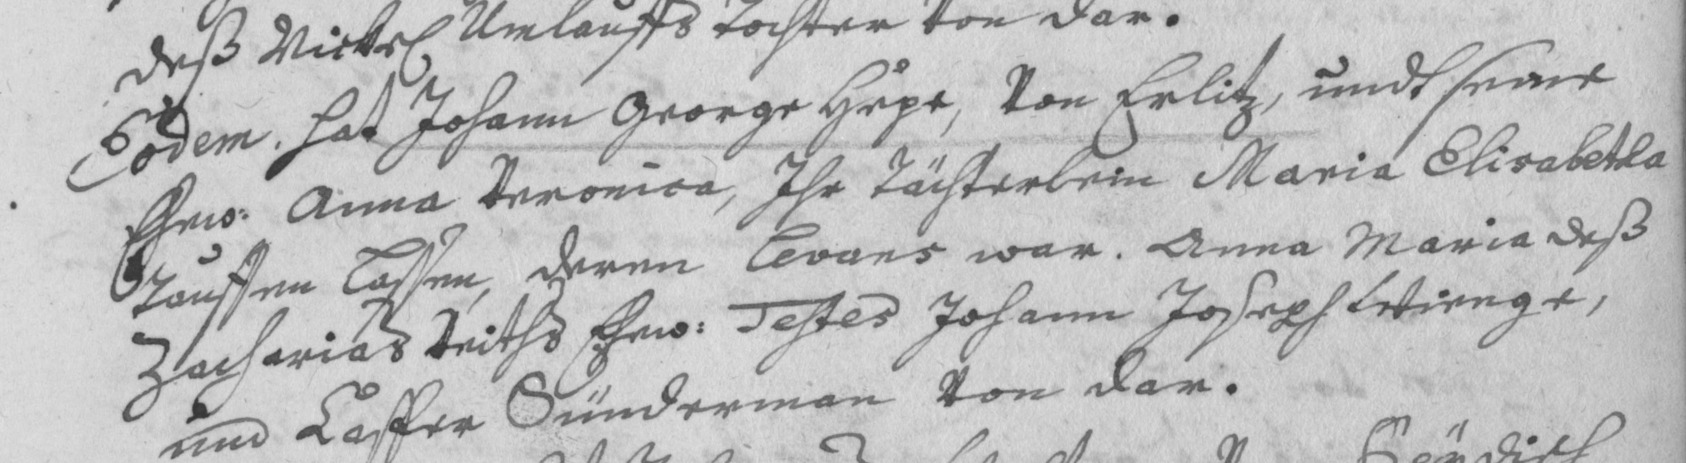 deß Victel Umlauffs Tochter von dar.
Eodem. hat Johann George Hepe, von Erlitz, undt seine
Ehew: Anna Veronica, Ihr Töchterlein Maria Elisabetha
Tauffen lassen, deren Levans war. Anna Maria deß
Zacharias Veiths Ehew: Testes Johann Joseph
und Casper Sünderman von dar.